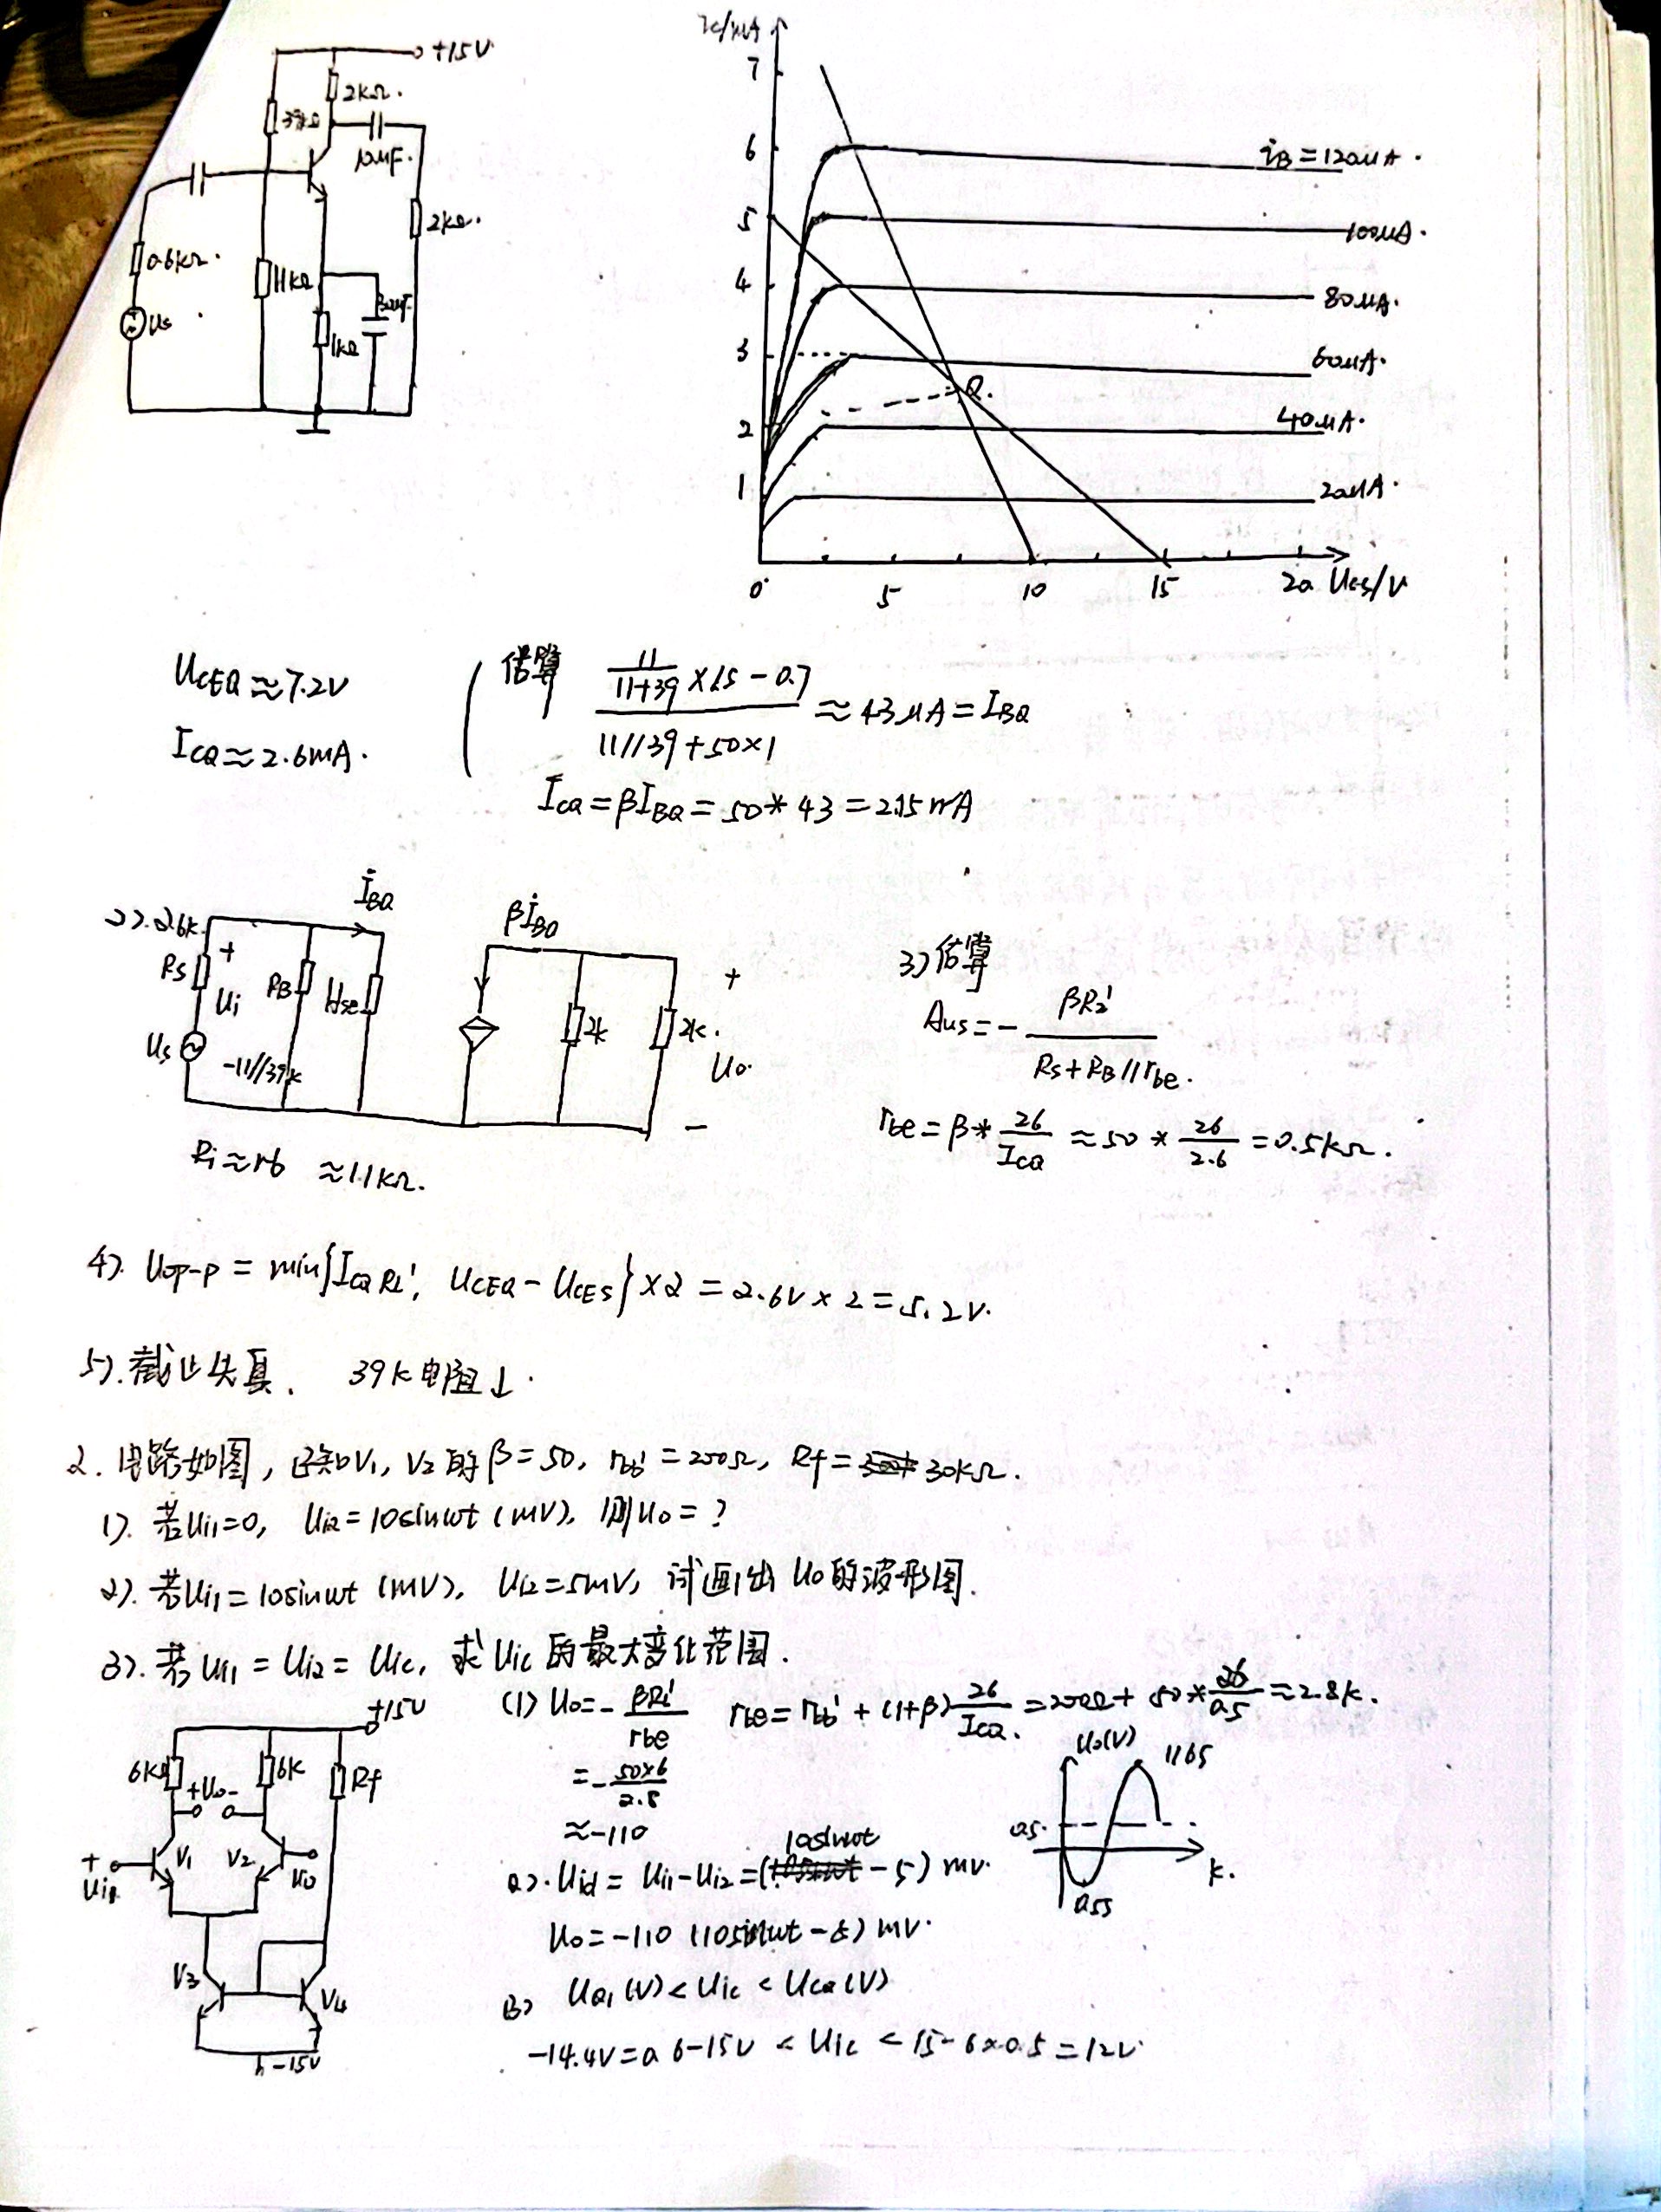 +15V
2KΩ.
39kΩ
10μF.
2kΩ.
0.6kΩ.
11kΩ
Us
1kΩ
ic/mA
7
6
5
4
3
2
1
iB=120μA.
100μA.
80μA.
60μA.
Q.
40μA.
20μA.
0 5 10 15 20
UCEQ≈7.2V
ICQ≈2.6mA.
估算 11/(11+39)×15-0.7
11//39+50×1
≈43μA=IBQ
ICQ=βIBQ=50*43=2.15mA
IBQ
βIBQ
Rs
+
Ui
RB
Us
11//39k
2k
2k.
+
Uo.
-
Ri≈rb ≈1.1kΩ.
3)估算
Aus=-
Rs+RB//rbe.
rbe=β*26/ICQ≈50*26/2.6=0.5kΩ.
4). Uop-p=min{ICQRL', UCEQ-UCES}×2=2.6V×2=5.2V.
5).截止失真. 39k电阻↓.
2.电路如图,已知V1,V2的β=50, rbb'=200Ω, Rf=30KΩ.
1).若Ui1=0, Ui2=10sinωt(mV),则Uo=?
2).若Ui1=10sinωt(mV), Ui2=5mV,试画出Uo的波形图.
3).若Ui1=Ui2=Uic,求Uic的最大变化范围.
+15V
6KΩ
6K
Rf
+Uo-
V1
V2
+
V3
V4
-15V
(1) Uo=-βRL'/rbe rbe=rbb'+(1+β)26/ICQ.=200Ω+50*26/0.5≈2.8k.
=-50×6/2.8
≈-110
2).Uid=Ui1-Ui2=(10sinωt-5)mV.
Uo=-110(10sinωt-5)mV.
Uo(V)
0.55
3)
-14.4V=0.6-15V<Uic<15-6×0.5=12V